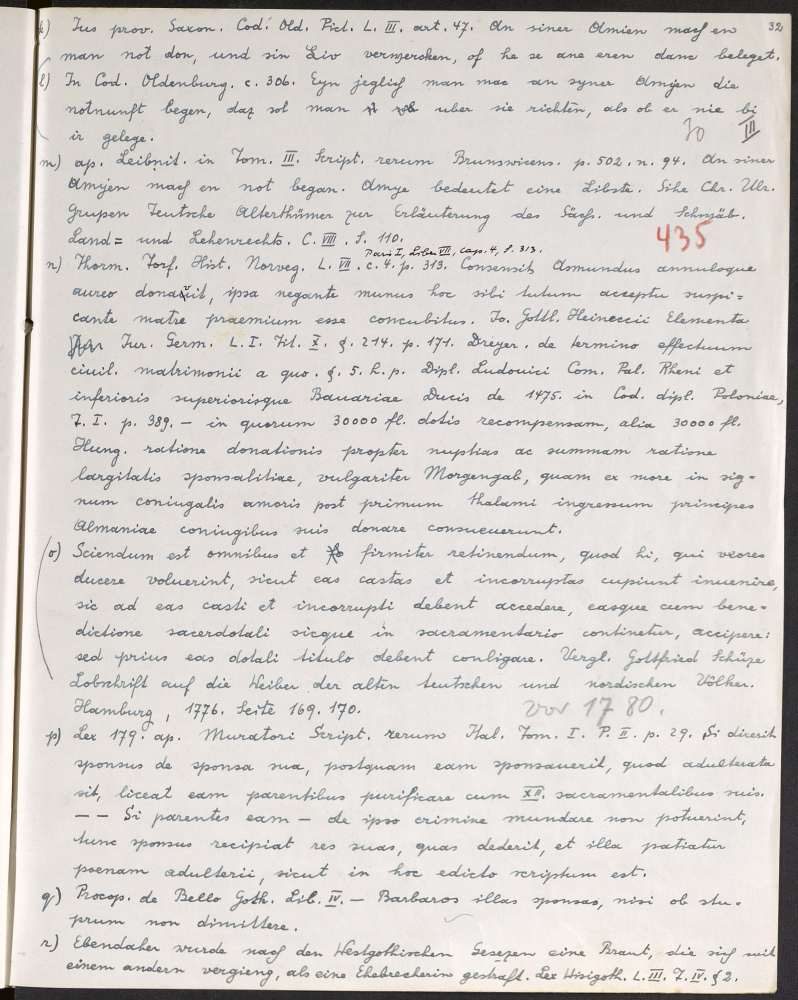 32
k) Jus prov. Saxon. Cod. Old. Pict. L. III. art. 47. An siner Amien mach en
man not don, und sin Liv verwercken, of he se ane eren danc beleget.
l) In Cod. Oldenburg. c. 306. Eyn jeglich man mac an syner Amyen die
notnunft begen, daz sol man uber sie richten, als ob er nie bi
ir gelege.
70 III
m) ap. Leibnit. in Tom. III. Script. rerum Brunswicens. p. 502. n. 94. An siner
Amyen mach en not began. Amye bedeutet eine Libste. Sihe Chr. Ulr.
Grupen Teutsche Alterthümer zur Erläuterung des Sächs. und Schwäb.
Land= und Lehenrechts. C. VIII. S. 110.
435
Pars I, Liber VII, cap. 4, S. 313.
n) Thorm. Torf. Hist. Norveg. L. VII. c. 4. p. 313. Consensit Asmundus annuloque
aureo donavit, ipsa negante munus hoc sibi tutum acceptu suspi=
cante matre praemium esse concubitus. Jo. Gottl. Heineccii Elementa
Jur. Germ. L. I. Tit. X. §. 214. p. 171. Dreyer. de termino effectuum
ciuil. matrimonii a quo. §. 5. h. p. Dipl. Ludouici Com. Pal. Rheni et
inferioris superiorisque Bauariae Ducis de 1475. in Cod. dipl. Poloniae,
T. I. p. 389. — in quorum 30000 fl. dotis recompensam, alia 30000 fl.
Hung. ratione donationis propter nuptias ac summam ratione
largitatis sponsalitiae, vulgariter Morgengab, quam ex more in sig-
num coniugalis amoris post primum thalami ingressum principes
Almaniae coniugibus suis donare consueuerunt.
o) Sciendum est omnibus et firmiter retinendum, quod hi, qui vxores
ducere voluerint, sicut eas castas et incorruptas cupiunt inuenire,
sic ad eas casti et incorrupti debent accedere, easque cum bene-
dictione sacerdotali sicque in sacramentario continetur, accipere:
sed prius eas dotali titulo debent conligare. Vergl. Gottfried Schüze
Lobschrift auf die Weiber der alten teutschen und nordischen Völker.
Hamburg, 1776. Seite 169. 170.
vor 1780.
p) Lex 179. ap. Muratori Script. rerum Ital. Tom. I. P. II. p. 29. Si dixerit
sponsus de sponsa sua, postquam eam sponsauerit, quod adulterata
sit, liceat eam parentibus purificare cum XII. sacramentalibus suis.
— — Si parentes eam — de ipso crimine mundare non potuerint,
tunc sponsus recipiat res suas, quas dederit, et illa patiatur
poenam adulterii, sicut in hoc edicto scriptum est.
q) Procop. de Bello Goth. Lib. IV. — Barbaros illas sponsas, nisi ob stu-
prum non dimittere.
r) Ebendaher wurde nach den Westgothischen Gesezen eine Braut, die sich mit
einem andern vergieng, als eine Ehebrecherin gestraft. Lex Wisigoth. L. III. T. IV. § 2.